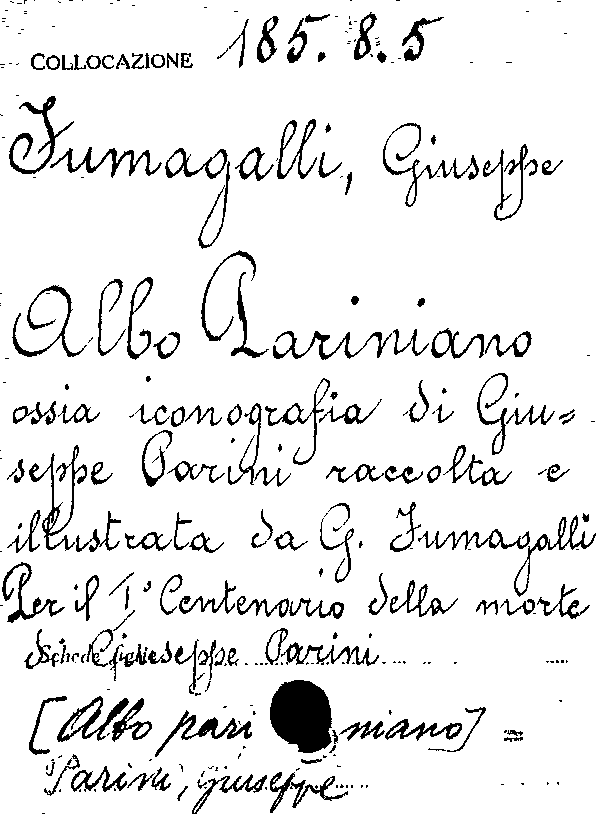 COLLOCAZIONE 185. 8. 5
Fumagalli, Giuseppe
Albo Pariniano
ossia iconografia di Giu=
seppe Parini raccolta e
illustrata da G. Fumagalli
Per il I° Centenario della morte
di Giuseppe Parini
[Albo pari niano] =
Parini, Giuseppe